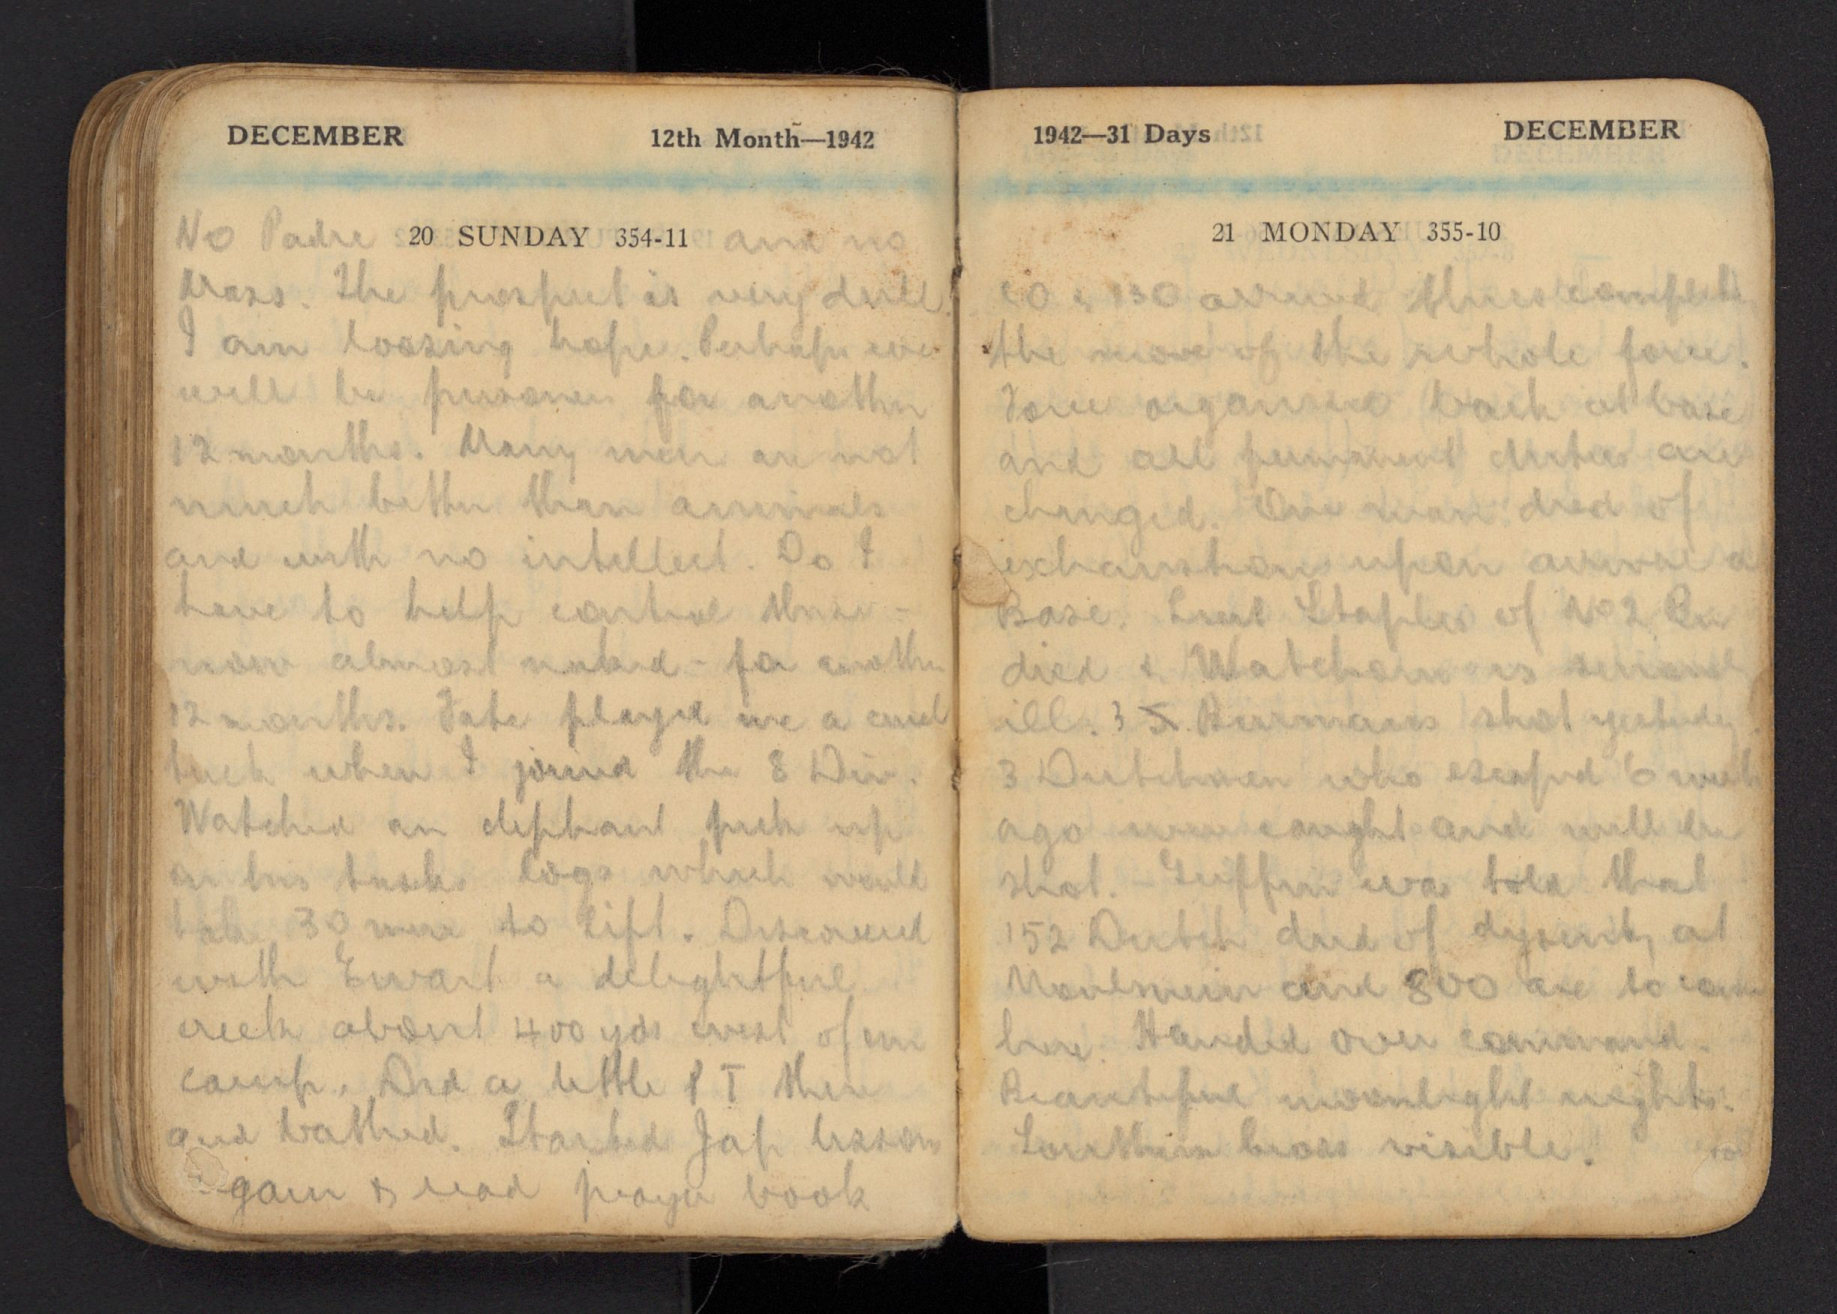 DECEMBER 12th Month—1942
20 SUNDAY 354-11
No Padre and no
Mass. The prospect is very dull.
I am loosing hope. Perhaps we
will be prisoner for another
12 months. Many men are not
much better than animals
and with no intellect. Do I
have to help control these -
now almost naked - for another
12 months. Fate played me a cruel
luck when I joined the 8 Div.
Watched an elephant pick up
on his tusks logs which would
take 30 men to lift. Discovered
with Ewart a delightful
creek about 400 yds west of our
camp. Did a little P T then
and bathed. Started Jap lesson
again & read prayer book
1942—31 Days DECEMBER
21 MONDAY 355-10
CO & 130 arrived thus complete
the move of the whole force.
Force organised back at base
and all permanent duties are
changed. One man died of
exhaustion upon arrival a
Base. Lieut Staples of No 2 Bn
died & Watchorn is serious
ill. 3 Burmans shot yesterday
3 Dutchmen who escaped 6 week
ago were caught and will be
shot. - Griffin was told that
152 Dutch died of dysentry at
Moulmein and 800 are to come
here. Handed over command.
Beautiful moonlight nights.
Southern Cross visible.